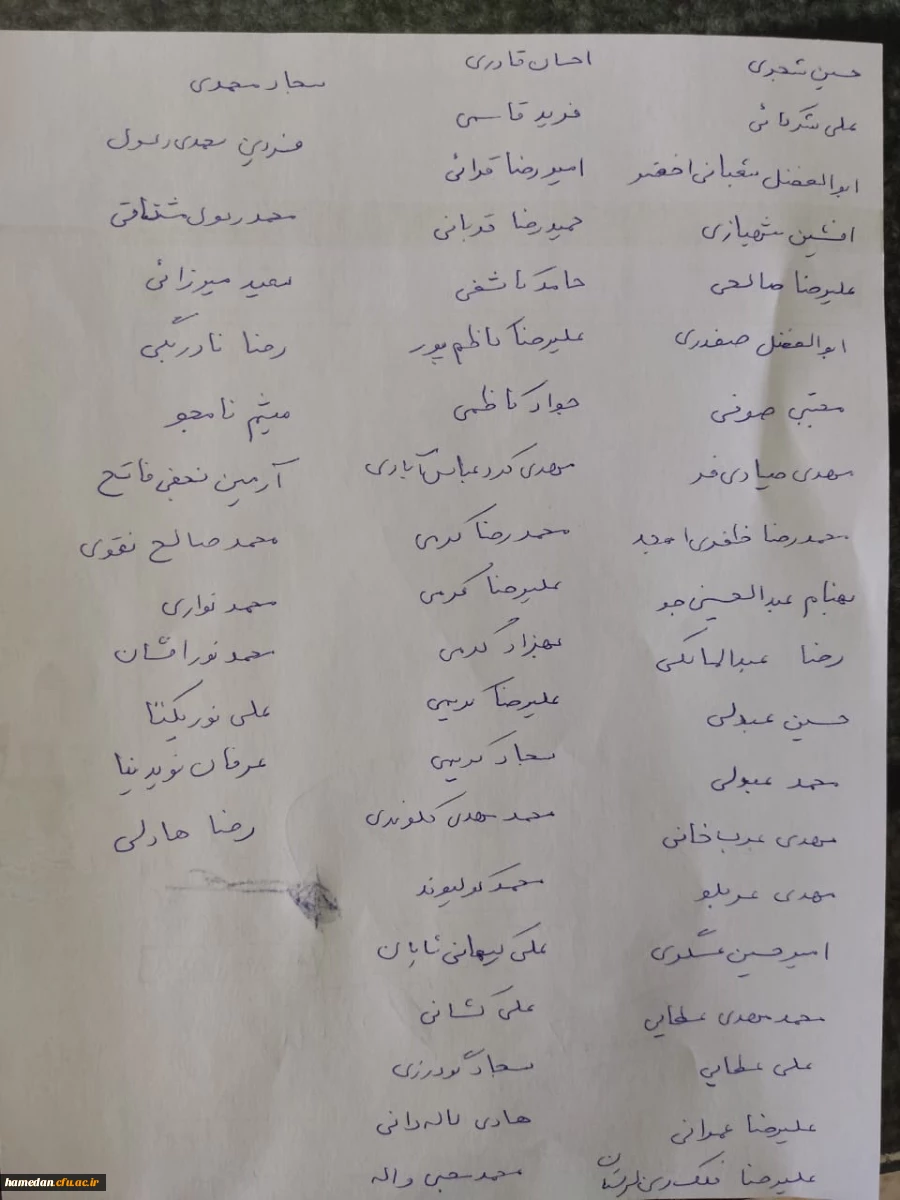 حسین شجری
علی شکرائی
ابوالفضل شعبانی اخضر
افشین شهبازی
علیرضا صالحی
ابوالفضل صفدری
مجتبی صوفی
مهدی صیادی فر
محمدرضا ظفری امجد
بهنام عبدالحسینی جو
رضا عبدالمالکی
حسین عبدلی
محمد عبدلی
مهدی عرب خانی
مهدی عربلو
امیرحسین عسگری
محمد مهدی عطایی
علی عطایی
علیرضا عمرانی
علیرضا
احسان قادری
فرید قاسمی
امیررضا قرائی
حمیدرضا قربانی
حامد کاشفی
علیرضا کاظم پور
جواد کاظمی
مهدی کرد عباس آبادی
محمدرضا کرمی
علیرضا کرمی
بهزاد کرمی
علیرضا کریمی
سجاد کریمی
محمد مهدی کلوندی
محمد کولیوند
علی کیهانی تابان
علی کشانی
سجاد گودرزی
هادی لاله دانی
محمد محبی واله
سجاد محمدی
محمدی رسول
محمد رسول مشتاقی
سعید میرزائی
رضا نادربیگی
میثم نامجو
آرمین نجفی فاتح
محمد صالح نقوی
محمد نواری
محمد نورافشان
علی نوریکتا
عرفان نویدنیا
رضا هادلی
hamedan.cfu.ac.ir